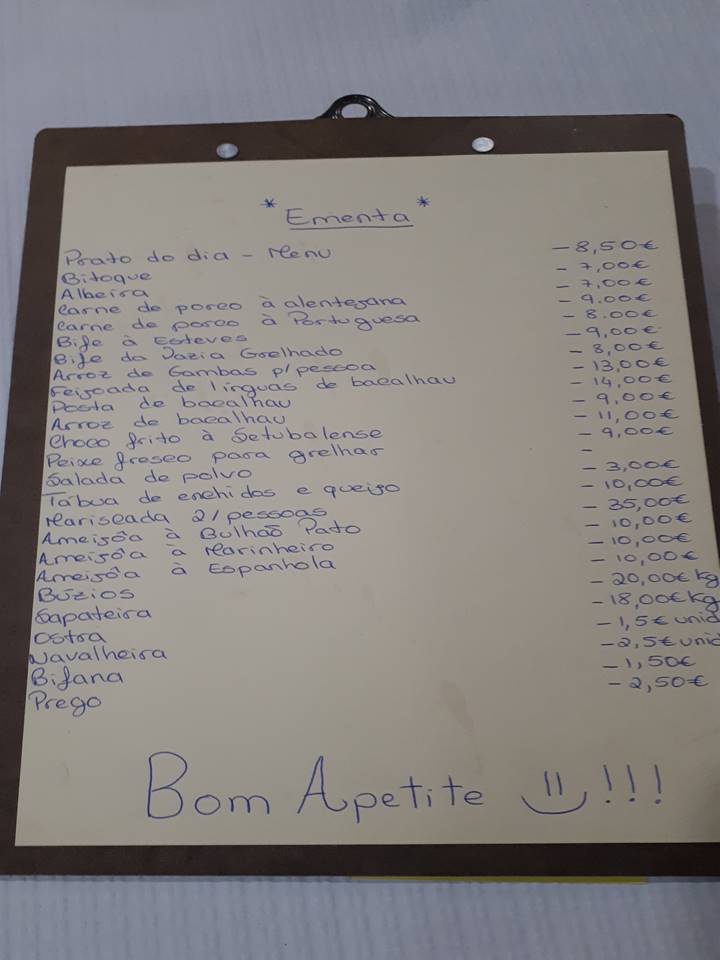 * Ementa *
Prato do dia - Menu - 8,50€
Bitoque - 7,00€
Alheira - 7,00€
Carne de porco à alentejana - 9.00€
Carne de porco à Portuguesa - 8.00€
Bife à Esteves - 9,00€
Bife da Vazia Grelhado - 8,00€
Arroz de Gambas p/pessoa - 13,00€
Feijoada de línguas de bacalhau - 14,00€
Posta de bacalhau - 9,00€
Arroz de bacalhau - 11,00€
Choco frito à Setubalense - 9,00€
Peixe fresco para grelhar -
Salada de polvo - 3,00€
Tábua de enchidos e queijo - 10,00€
Mariscada 2/pessoas - 35,00€
Ameijôa à Bulhão Pato - 10,00€
Ameijôa à Marinheiro - 10,00€
Ameijôa à Espanhola - 10,00€
Búzios - 20,00€ kg
Sapateira - 18,00€ Kg
Ostra - 1,5€ unid
Navalheira - 2,5€ unid
Bifana - 1,50€
Prego - 2,50€
Bom Apetite !!!